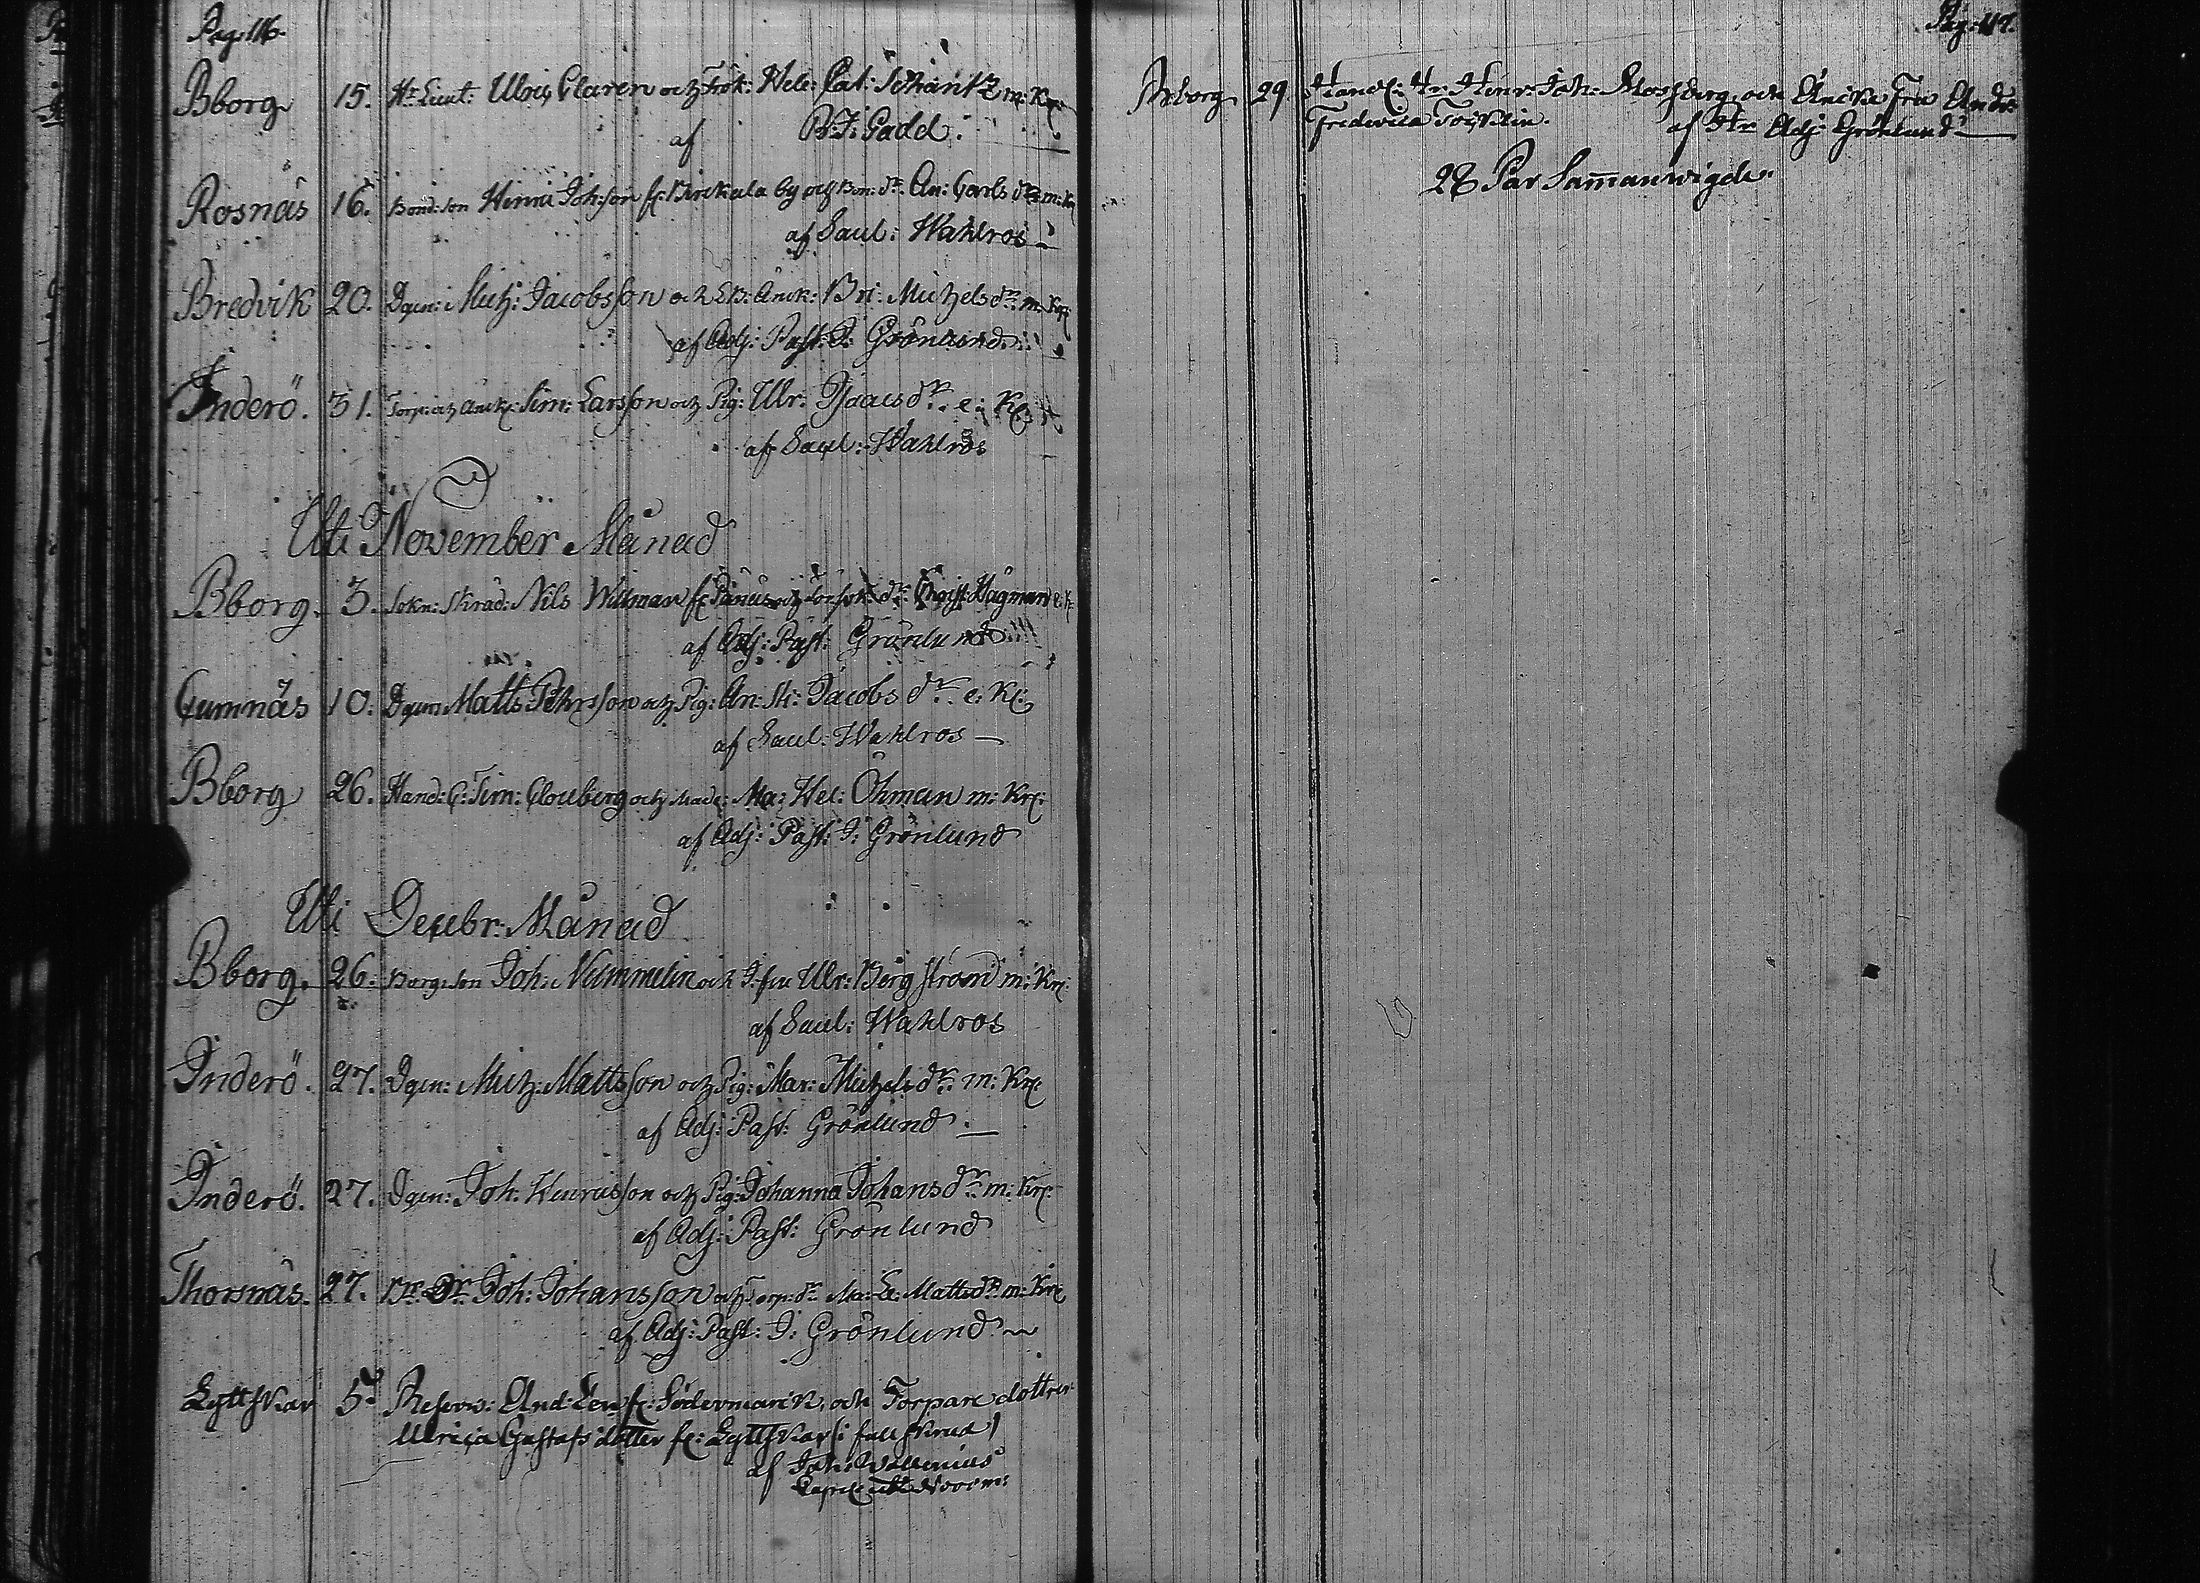 Pag: 116.
Bborg 15. Hr Lieut: Ulric Claren och Frök: Hele: Cat: Schantz m: Kr:
af B: J: Gadd.
Rosnäs 16. Bond: son Henric Joh:son fr: Birckala by och Bon: dr An: Carls dr m: Kr
af Saul: Wahlros
Bredvik 20. Dgm: Mich: Jacobsson och Enk: Bri: Michels dr m: Kr:
af Adj: Past: J: Grönlund
Inderö. 31. Torp: och Sim: Larsson och Pig: Ulr: Isaacs dr e: Kr:
af Saul: Wahlros
Uti November Månad
Bborg. 3. Sokn: Skräd: Nils Widman fr: och dr Christ: Hägman e: Kr
af Adj: Past: Grönlund
Gumnäs 10. Dgm: Matts Pehrsson och Pig: An: St: Jacobs dr e: Kr:
af Saul: Wahlros
Bborg 26. Hand: G: Sim: Clouberg och Made: Ma: Hel: Öhman m: Kr:
af Adj: Past: J: Grönlund
Uti Decebr: Månad
Bborg. 26. Borg: son Joh: Nummelin och J:fru Ulr: Bergström m: Kr:
af Saul: Wahlros
Inderö. 27. Dgm: Mich: Mattsson och Pig: Mar: Michels dr m: Kr:
af Adj: Past: Grönlund.
Inderö. 27. Dgm: Joh: Henricsson och Pig: Johanna Johans dr m: Kr:
af Adj: Past: Grönlund
Thorsnäs. 27. Joh: Johansson och Torp: dr Ma: L: Matts dr m: Kr:
af Adj: Past: J: Grönlund
Lyttskär 5. Reserv: And: Len fr: Södermark och Torpare dotter
Ulrica Gustafs dotter fr: Lyttskär (
af Joh: Wallenius
Pag: 117.
Bborg 29. Handl: Hr Henr: Joh: Mossberg och Änckie Fru And:
Frederica Tocklin. af Hr Adj: Grönlund
28 Par Sam̄anwigde.